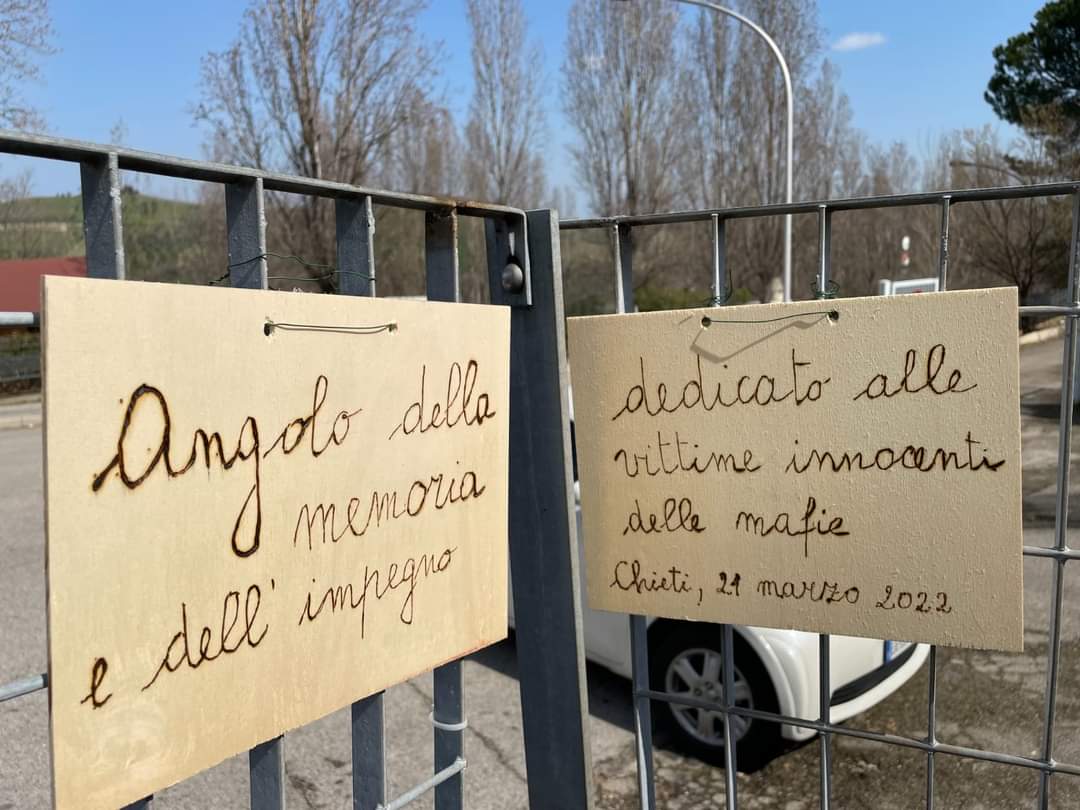 Angolo della
memoria
e dell' impegno
dedicato alle
vittime innocenti
delle mafie
Chieti, 21 marzo 2022